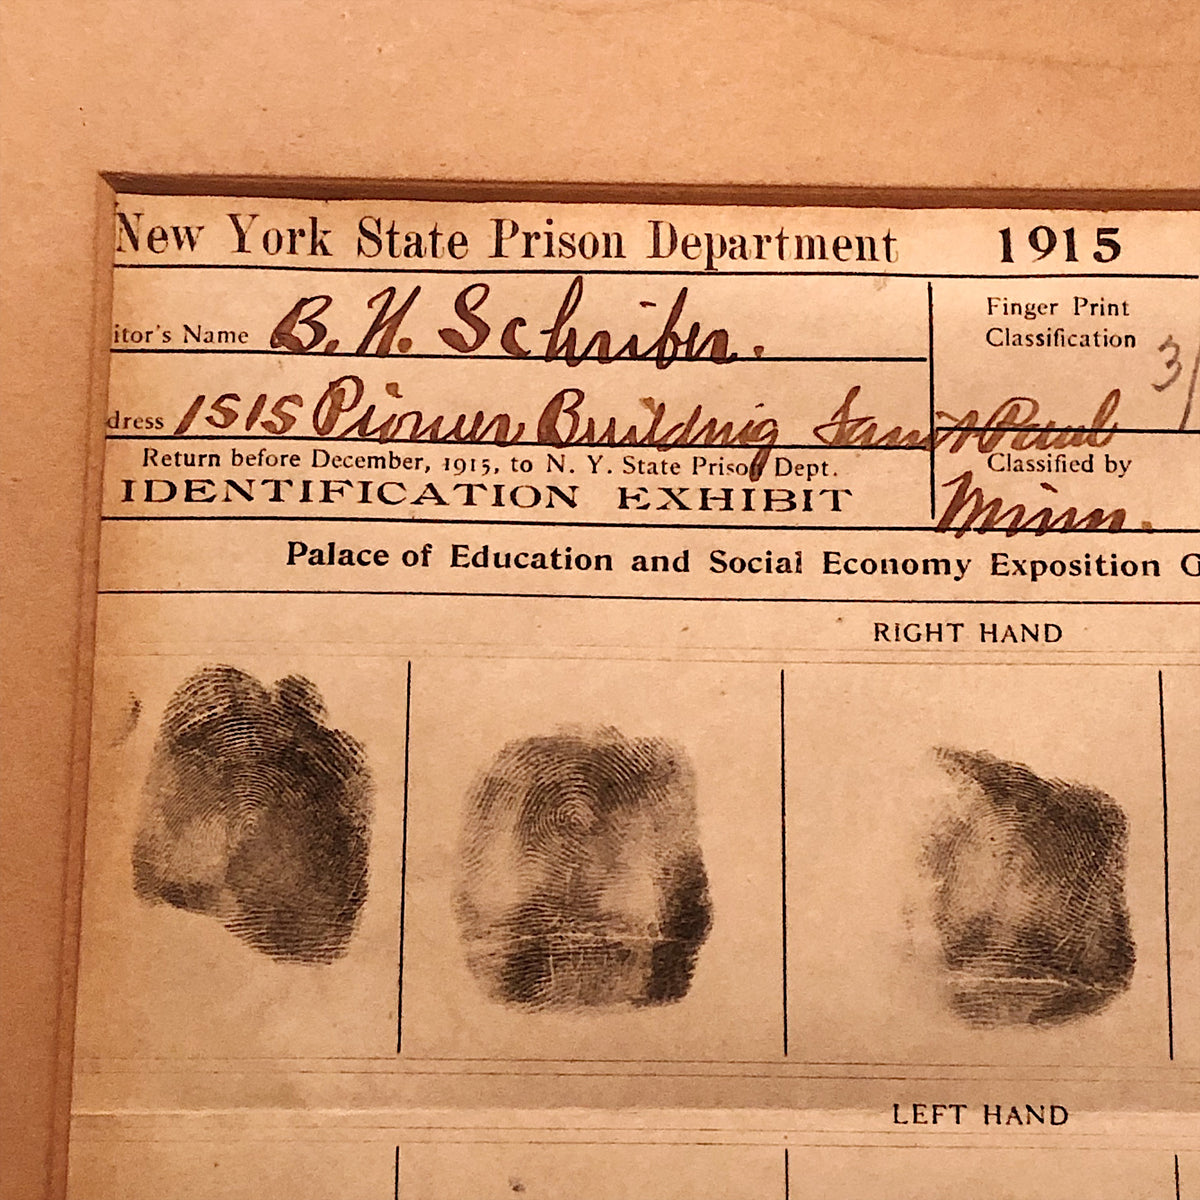 New York State Prison Department 1915
itor's Name B. H. Schriber.
Finger Print
Classification 3/
dress 1515 Pioneer Building Saint Paul
Minn.
Return before December, 1915, to N. Y. State Prison Dept.
Classified by
IDENTIFICATION EXHIBIT
Palace of Education and Social Economy Exposition G
RIGHT HAND
LEFT HAND